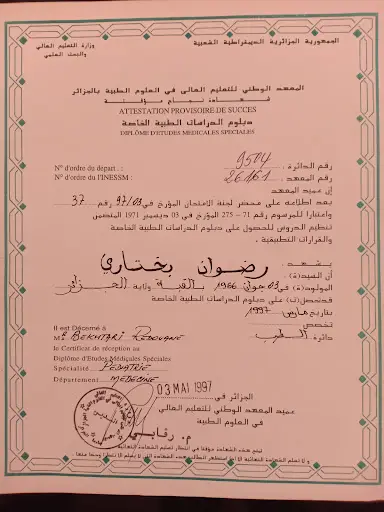 الجمهورية الجزائرية الديمقراطية الشعبية
وزارة التعليم العالي
والبحث العلمي
المعهد الوطني للتعليم العالي في العلوم الطبية بالجزائر
شهادة نجاح مؤقتة
ATTESTATION PROVISOIRE DE SUCCES
دبلوم الدراسات الطبية الخاصة
DIPLÔME D'ETUDES MEDICALES SPECIALES
N° d'ordre du départ. : 9504 رقم الدائرة :
N° d'ordre du l'INESSM : 26161 رقم المعهد :
إن عميد المعهد
بعد اطلاعه على محضر لجنة الامتحان المؤرخ في 97/03 رقم 37
واعتبارا للمرسوم رقم 71 - 275 المؤرخ في 03 ديسمبر 1971 المتضمن
تنظيم الدروس للحصول على دبلوم الدراسات الطبية الخاصة
والقرارات التطبيقية .
يشهد :
أن السيد(ة) : رضوان بختاري
المولود(ة) في 03 جوان 1966 بـ القبة ولاية الجزائر
قد تحصل(ت) على دبلوم الدراسات الطبية الخاصة
بتاريخ مارس 1997
تخصص
دائرة الطب
Il est Décerné à
Mr BEKHTARI REDOUANE
le Certificat de réception au
Diplôme d'Etudes Médicales Spéciales
Spécialité PEDIATRIE
Département MEDECINE
03 MAI 1997
الجزائر في
عميد المعهد الوطني للتعليم العالي
في العلوم الطبية